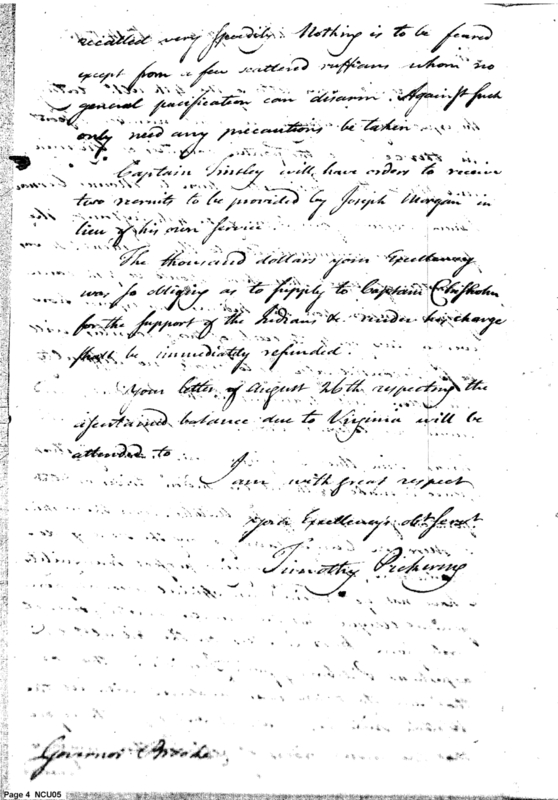 recalled very speedily. Nothing is to be feared
except from a few scattered ruffians whom no
general pacification can disarm. Against such
only need any precautions be taken
Captain Tinsley will have orders to receive
two recruits to be provided by Joseph Morgan in
lieu of his own service.
The thousand dollars your Excellency
was so obliging as to supply to Captain Chisholm
for the support of the Indians & under his charge
shall be immediately refunded.
Your letter of August 26th respecting the
ascertained balance due to Virginia will be
attended to
I am with great respect
your Excellency's obt Servt
Timothy Pickering
Governor Brooke
Page 4 NCU05